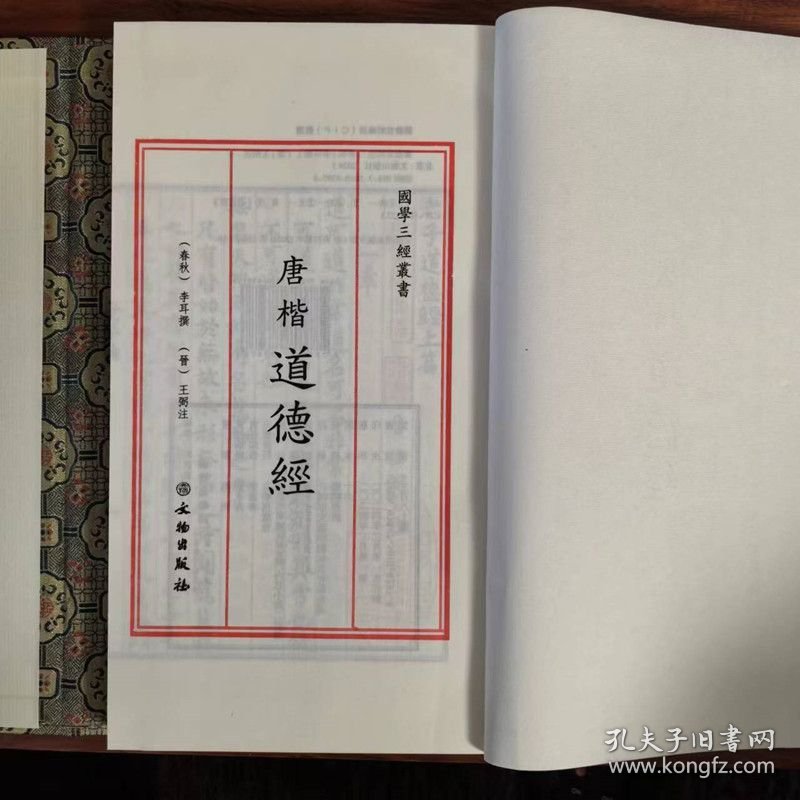 國學三經叢書
唐楷道德經
（春秋）李耳撰 （晉）王弼注
文物出版社
孔夫子旧书网
www.kongfz.com